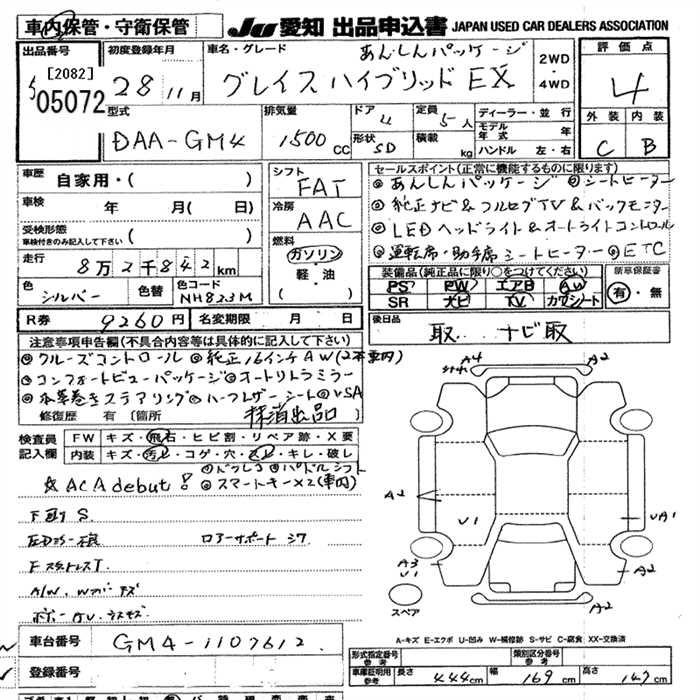 車内保管・守衛保管
JU 愛知 出品申込書 JAPAN USED CAR DEALERS ASSOCIATION
出品番号
[2082]
05072
初度登録年月
28年11月
車名・グレード
あんしんパッケージ
グレイスハイブリッド EX
2WD
4WD
評価点
4
外装 内装
C B
型式
DAA-GM4
排気量
1500 CC
ドア
4
形状
5D
定員
5人
積載
kg
ディーラー・並行
モデル年式 年
ハンドル 左・右
車歴
自家用・( )
車検
年 月( 日)
受検形態
車検付きのみ記入して下さい
( )
走行
8万2千842km
色
シルバー
色替
色コード
NH823M
シフト
FAT
冷房
AAC
燃料
ガソリン
軽・油
( )
セールスポイント(正常に機能するものに限ります)
◎あんしんパッケージ ◎シートヒーター
◎純正ナビ&フルセグTV&バックモニター
◎LEDヘッドライト&オートライトコントロール
◎運転席・助手席シートヒーター◎ETC
装備品(純正品に限り○をつけてください)
PS PW エアB AW
SR ナビ TV カワシート
新車保証書
有・無
R券
9260円
名変期限 月 日
後日品
取 ナビ取
注意事項申告欄(不具合内容等は具体的に記入して下さい)
◎クルーズコントロール ◎純正16インチAW(2本車内)
◎コンフォートビューパッケージ◎オートリトラミラー
◎本革巻きステアリング◎ハーフレザーシート◎VSA
修復歴 有 〔箇所 抹消出品〕
検査員記入欄
FW キズ・飛石・ヒビ割・リペア跡・X要
内装 キズ・汚れ・コゲ・穴・スレ・キレ・破レ
◎ドラレコ◎パドルシフト
☆ACAdebut! ◎スマートキー×2(車内)
下回りS
ロアーサポート シワ
A4
A2
A2
V1
UA1
A3
V1
A2
A2
スペア
A-キズ E-エクボ U-凹み W-補修跡 S-サビ C-腐食 XX-交換済
車台番号
GM4-1107612
登録番号
形式指定番号
参考
類別区分番号
参考
車庫証明用
参考
長さ 444cm
幅 169cm
高さ 147cm